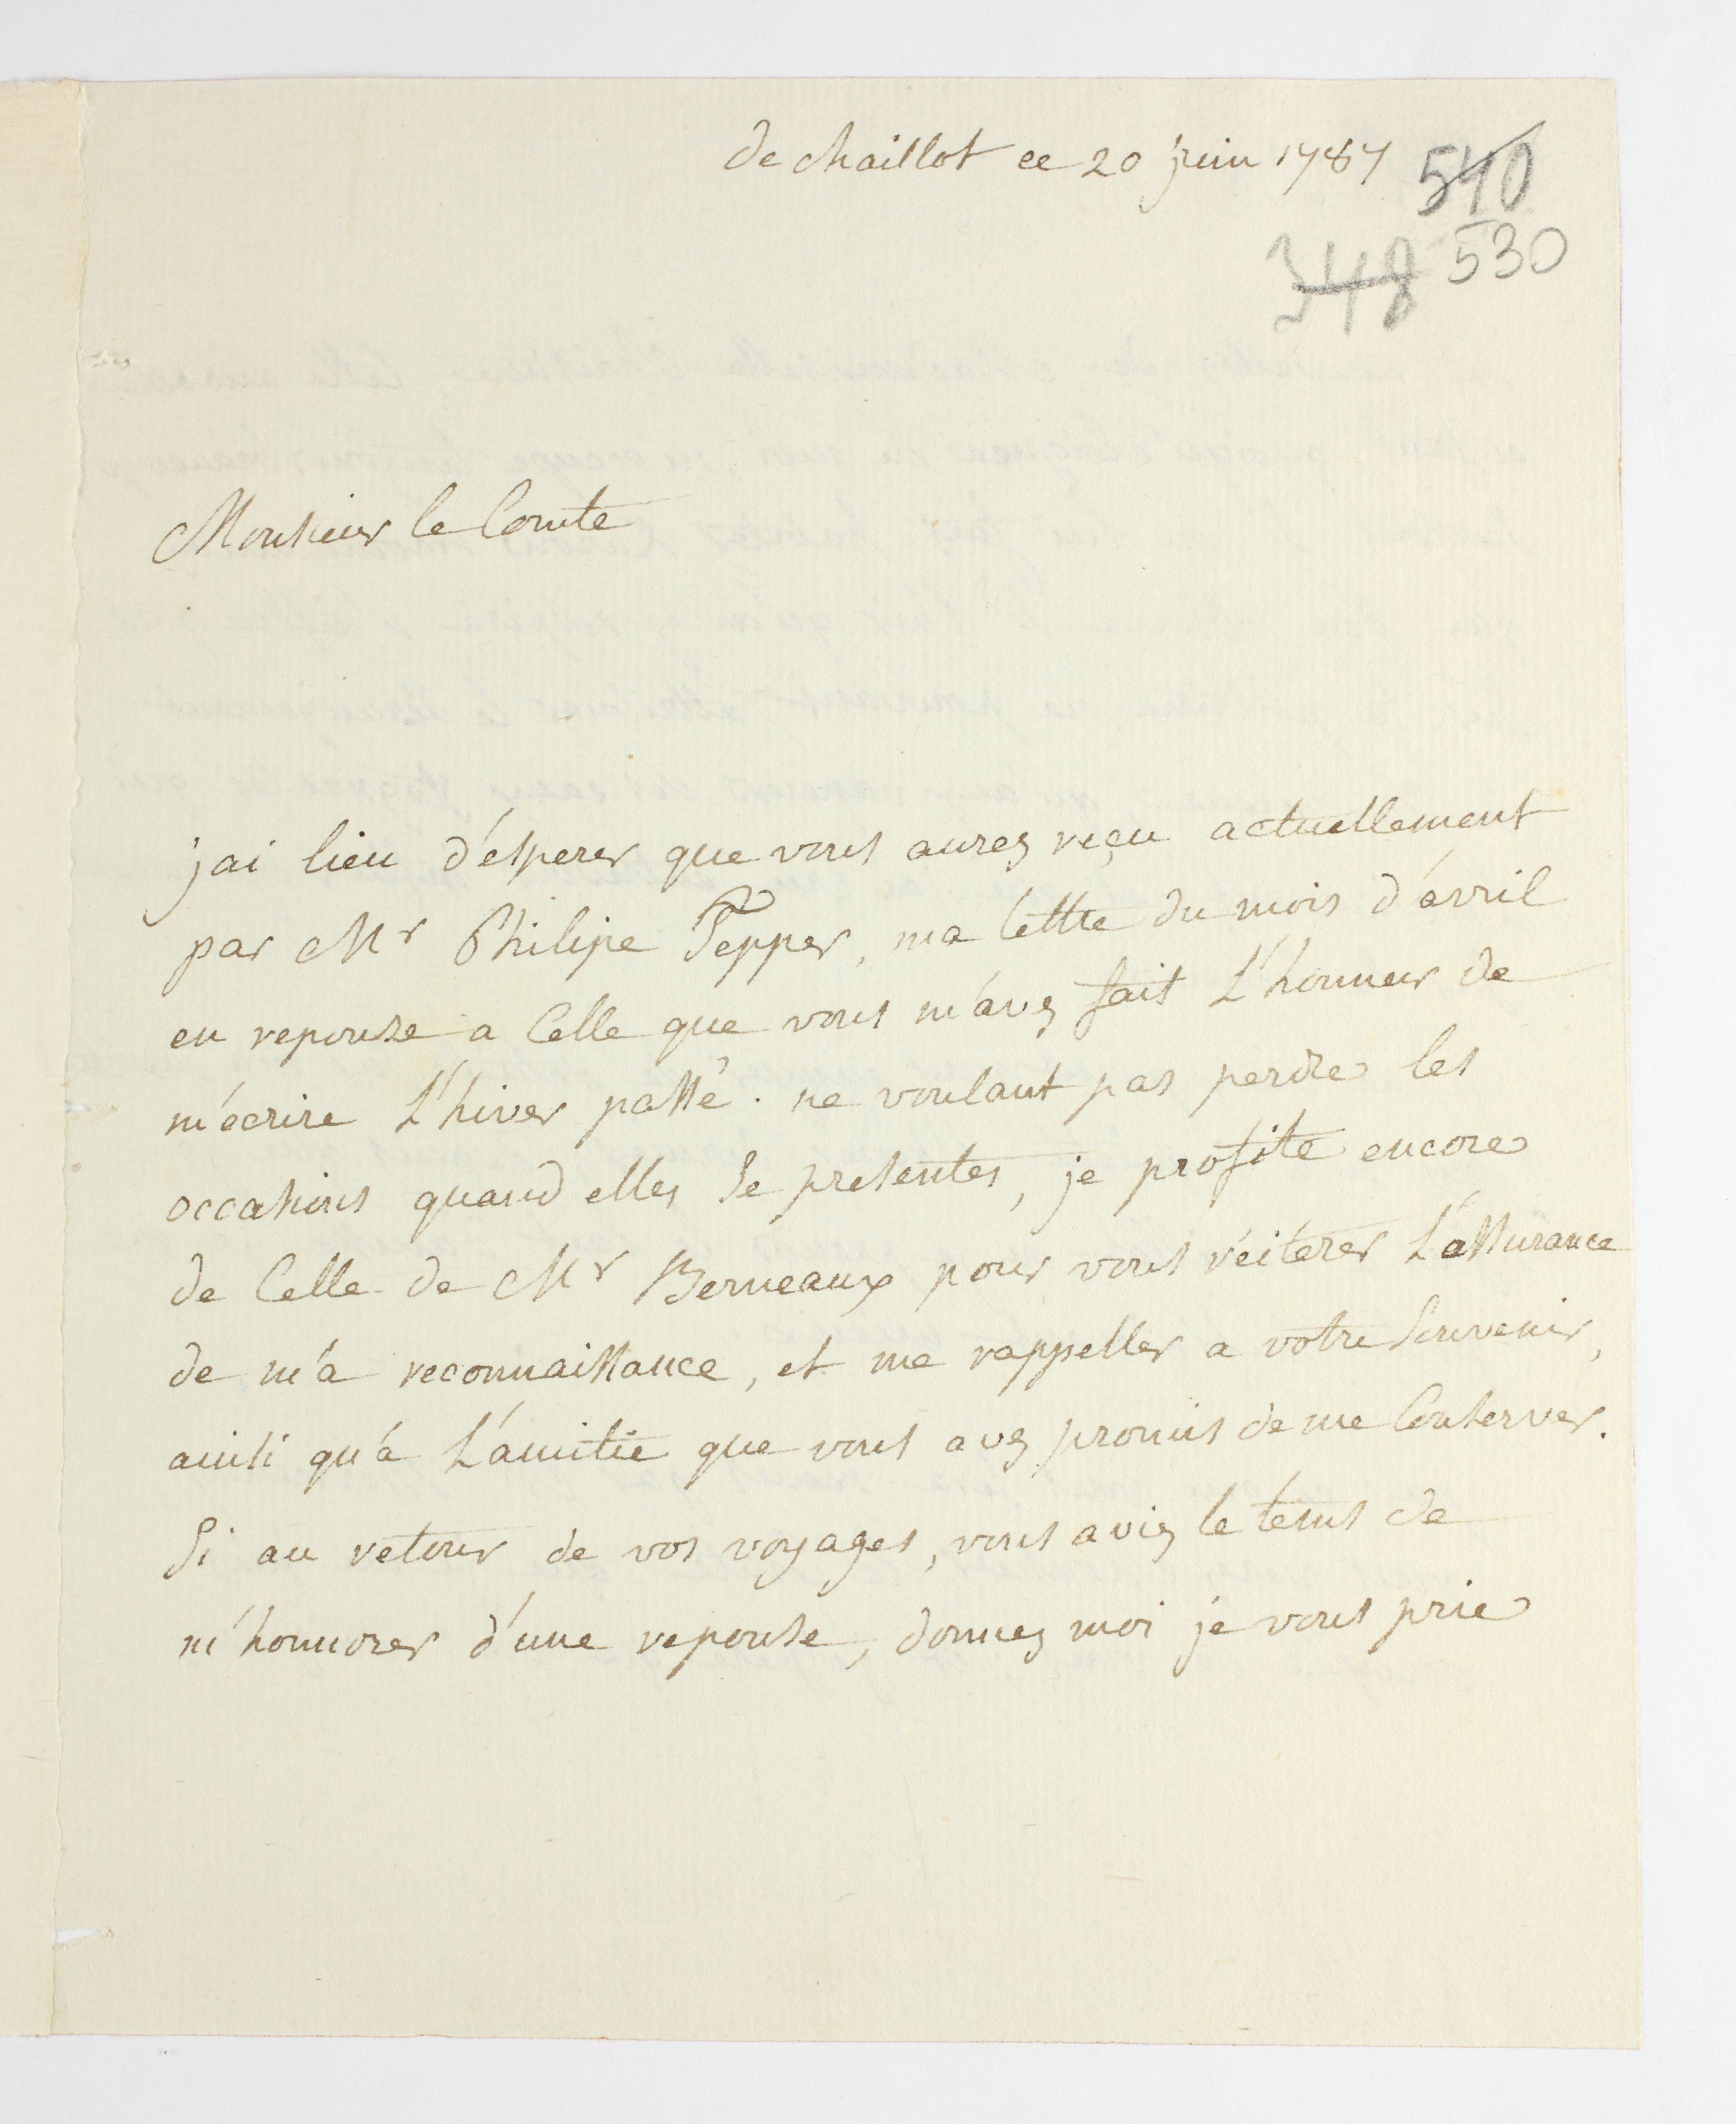 de chaillot ce 20 juin 1787
540
348 530
Monsieur le Comte
j'ai lieu d'ésperer que vous aurez reçu actuellement
par Mr Philipe Tepper, ma lettre du mois d'avril
en reponse a Celle que vous m'avez fait L'honneur de
m'écrire L'hiver passé. ne voulant pas perdre les
occasions quand elles se presentes, je profite encore
de Celle de Mr Berneaux pour vous réiterer L'assurance
de m'a reconnaissance, et me rappeller a votre Souvenir,
ainsi qu'á L'amitié que vous avez promis de me Conserver.
Si au retour de vos voyages, vous aviez le tems de
m'honnorer d'une reponse, donnez moi je vous prie